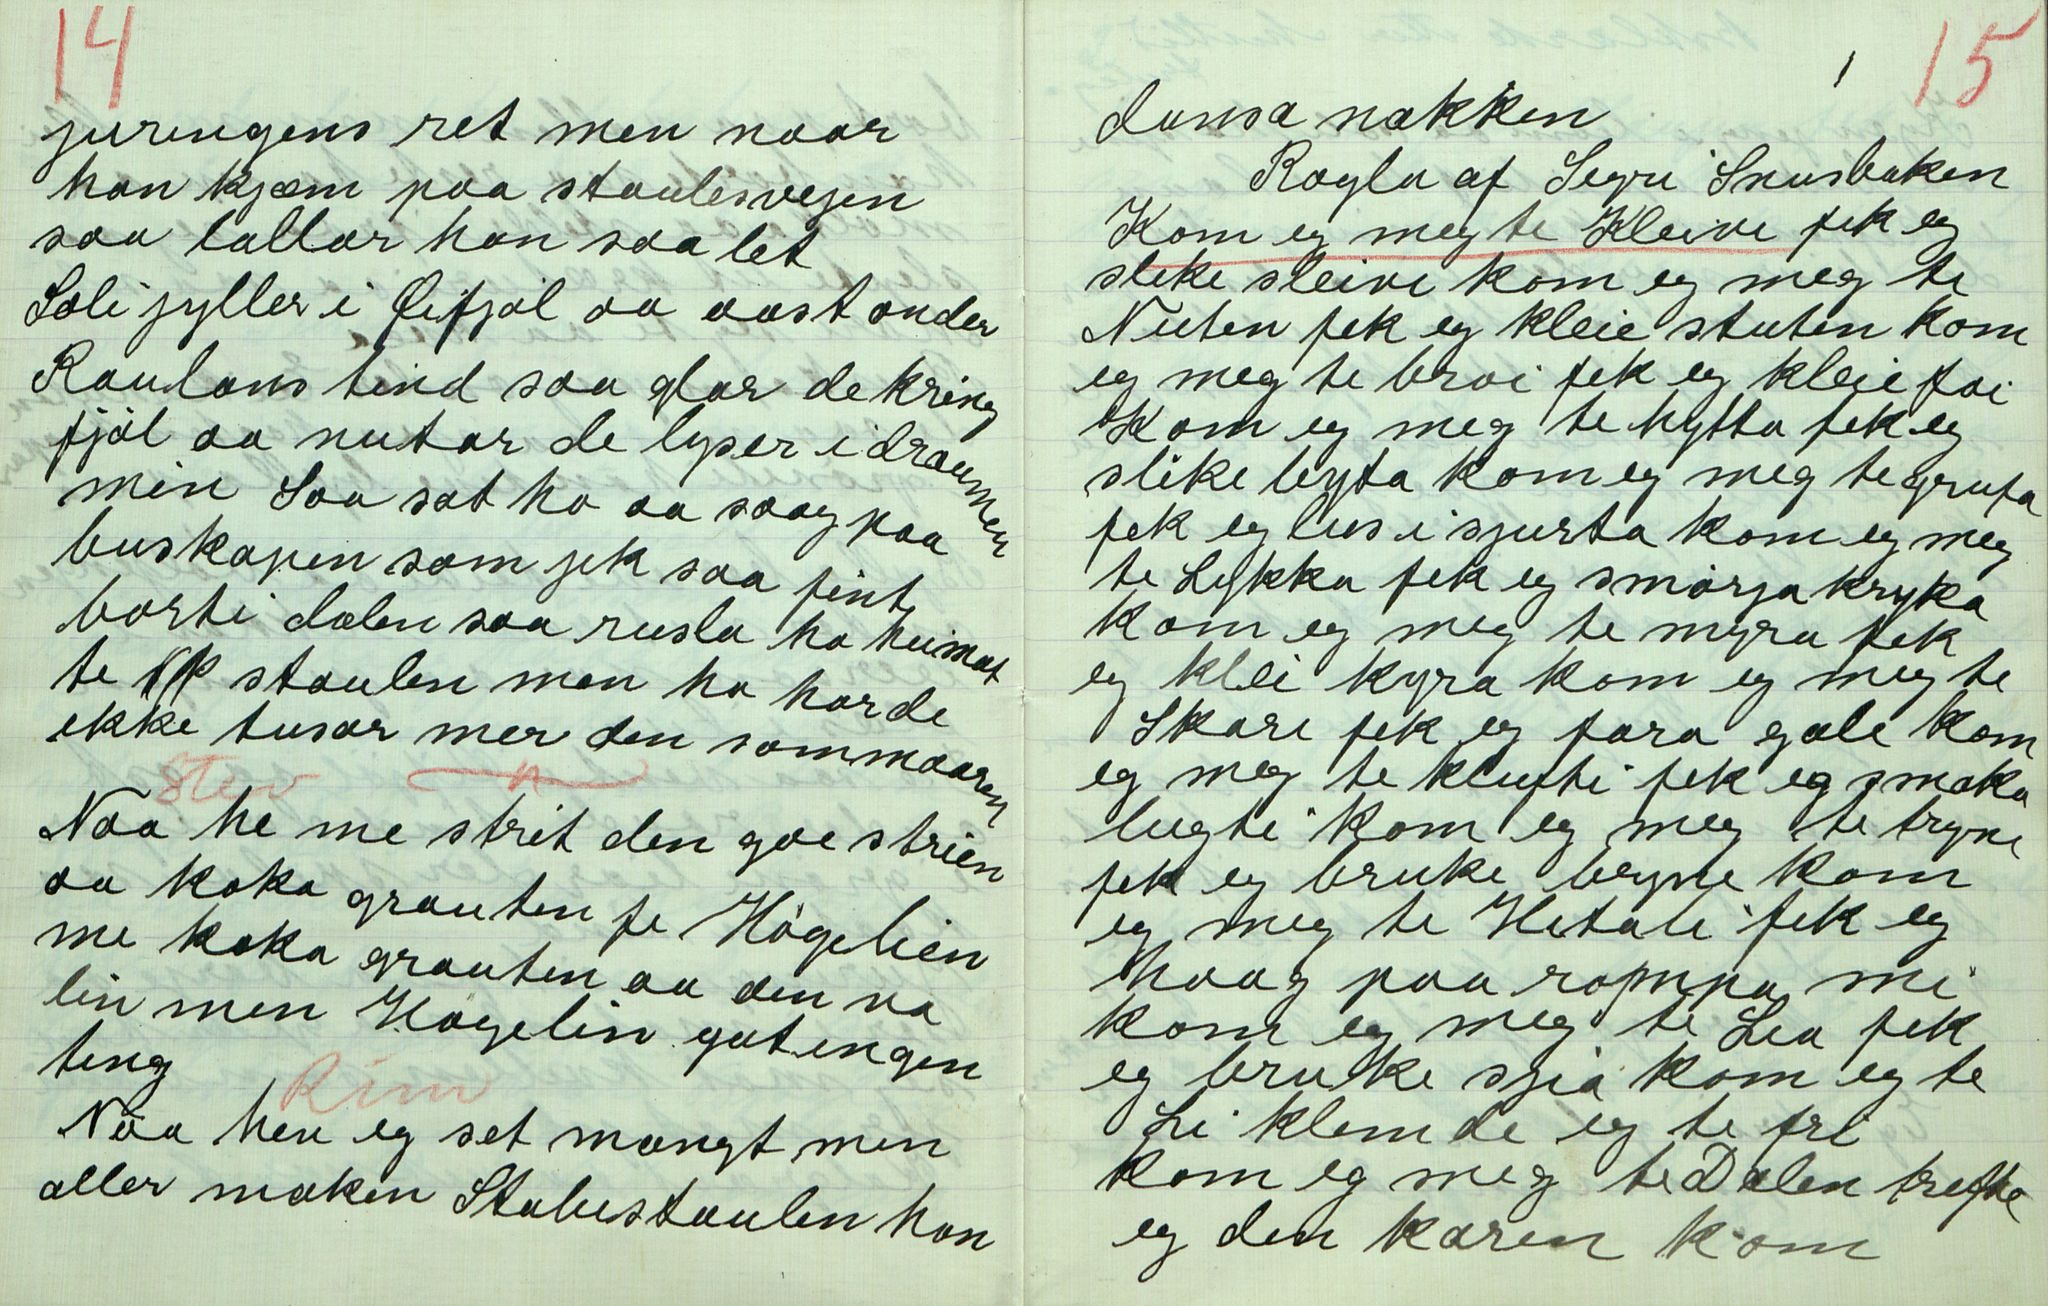 14
juringens ret men naar
han kjæm paa staulesvegen
saa lallar han saa let
Soli gyller i Øifjøl aa aast onder
Raulans tind saa glar de kring
fjøl aa nutar de lyser i draumen
min Saa sat ho aa saag paa
buskapen som gjk saa fint
borti dalen saa rusla ho heimat
te staulen men ho horde
ikke tusar mer den sommaaren
Stev
Naa he me strit den goe strien
aa koka grauten fe Högelien
me koka grauten aa den va
lin men Hogelin gat engen
ting
Rim
Naa heu eg set mangt men
aller maken Stalustaulen han
15
dansa nakken
Rogla af Segri Snusbaken
Kom eg meg te Kleivi fek eg
slike sleive kom eg meg te
Nuten fek eg kleie stuten kom
eg meg te broi fek eg kleie foi
Kom eg meg te hytta fek eg
slike byta kom eg meg te grufa
fek eg lus i sjurta kom eg meg
te Lykka fek eg smörja kryka
kom eg meg te myra fek
eg klei kyra kom eg meg te
Skare fek eg fara gale kom
eg meg te klufti fek eg smaka
lugti kom eg meg te tryne
fek eg bruke bryne kom
eg meg te Hetali fek eg
haag paa rompa mi
kom eg meg te Lia fek
eg bruke sjia kom eg te
Li klemde eg te fri
kom eg meg te Dalen trefte
eg den karen kom